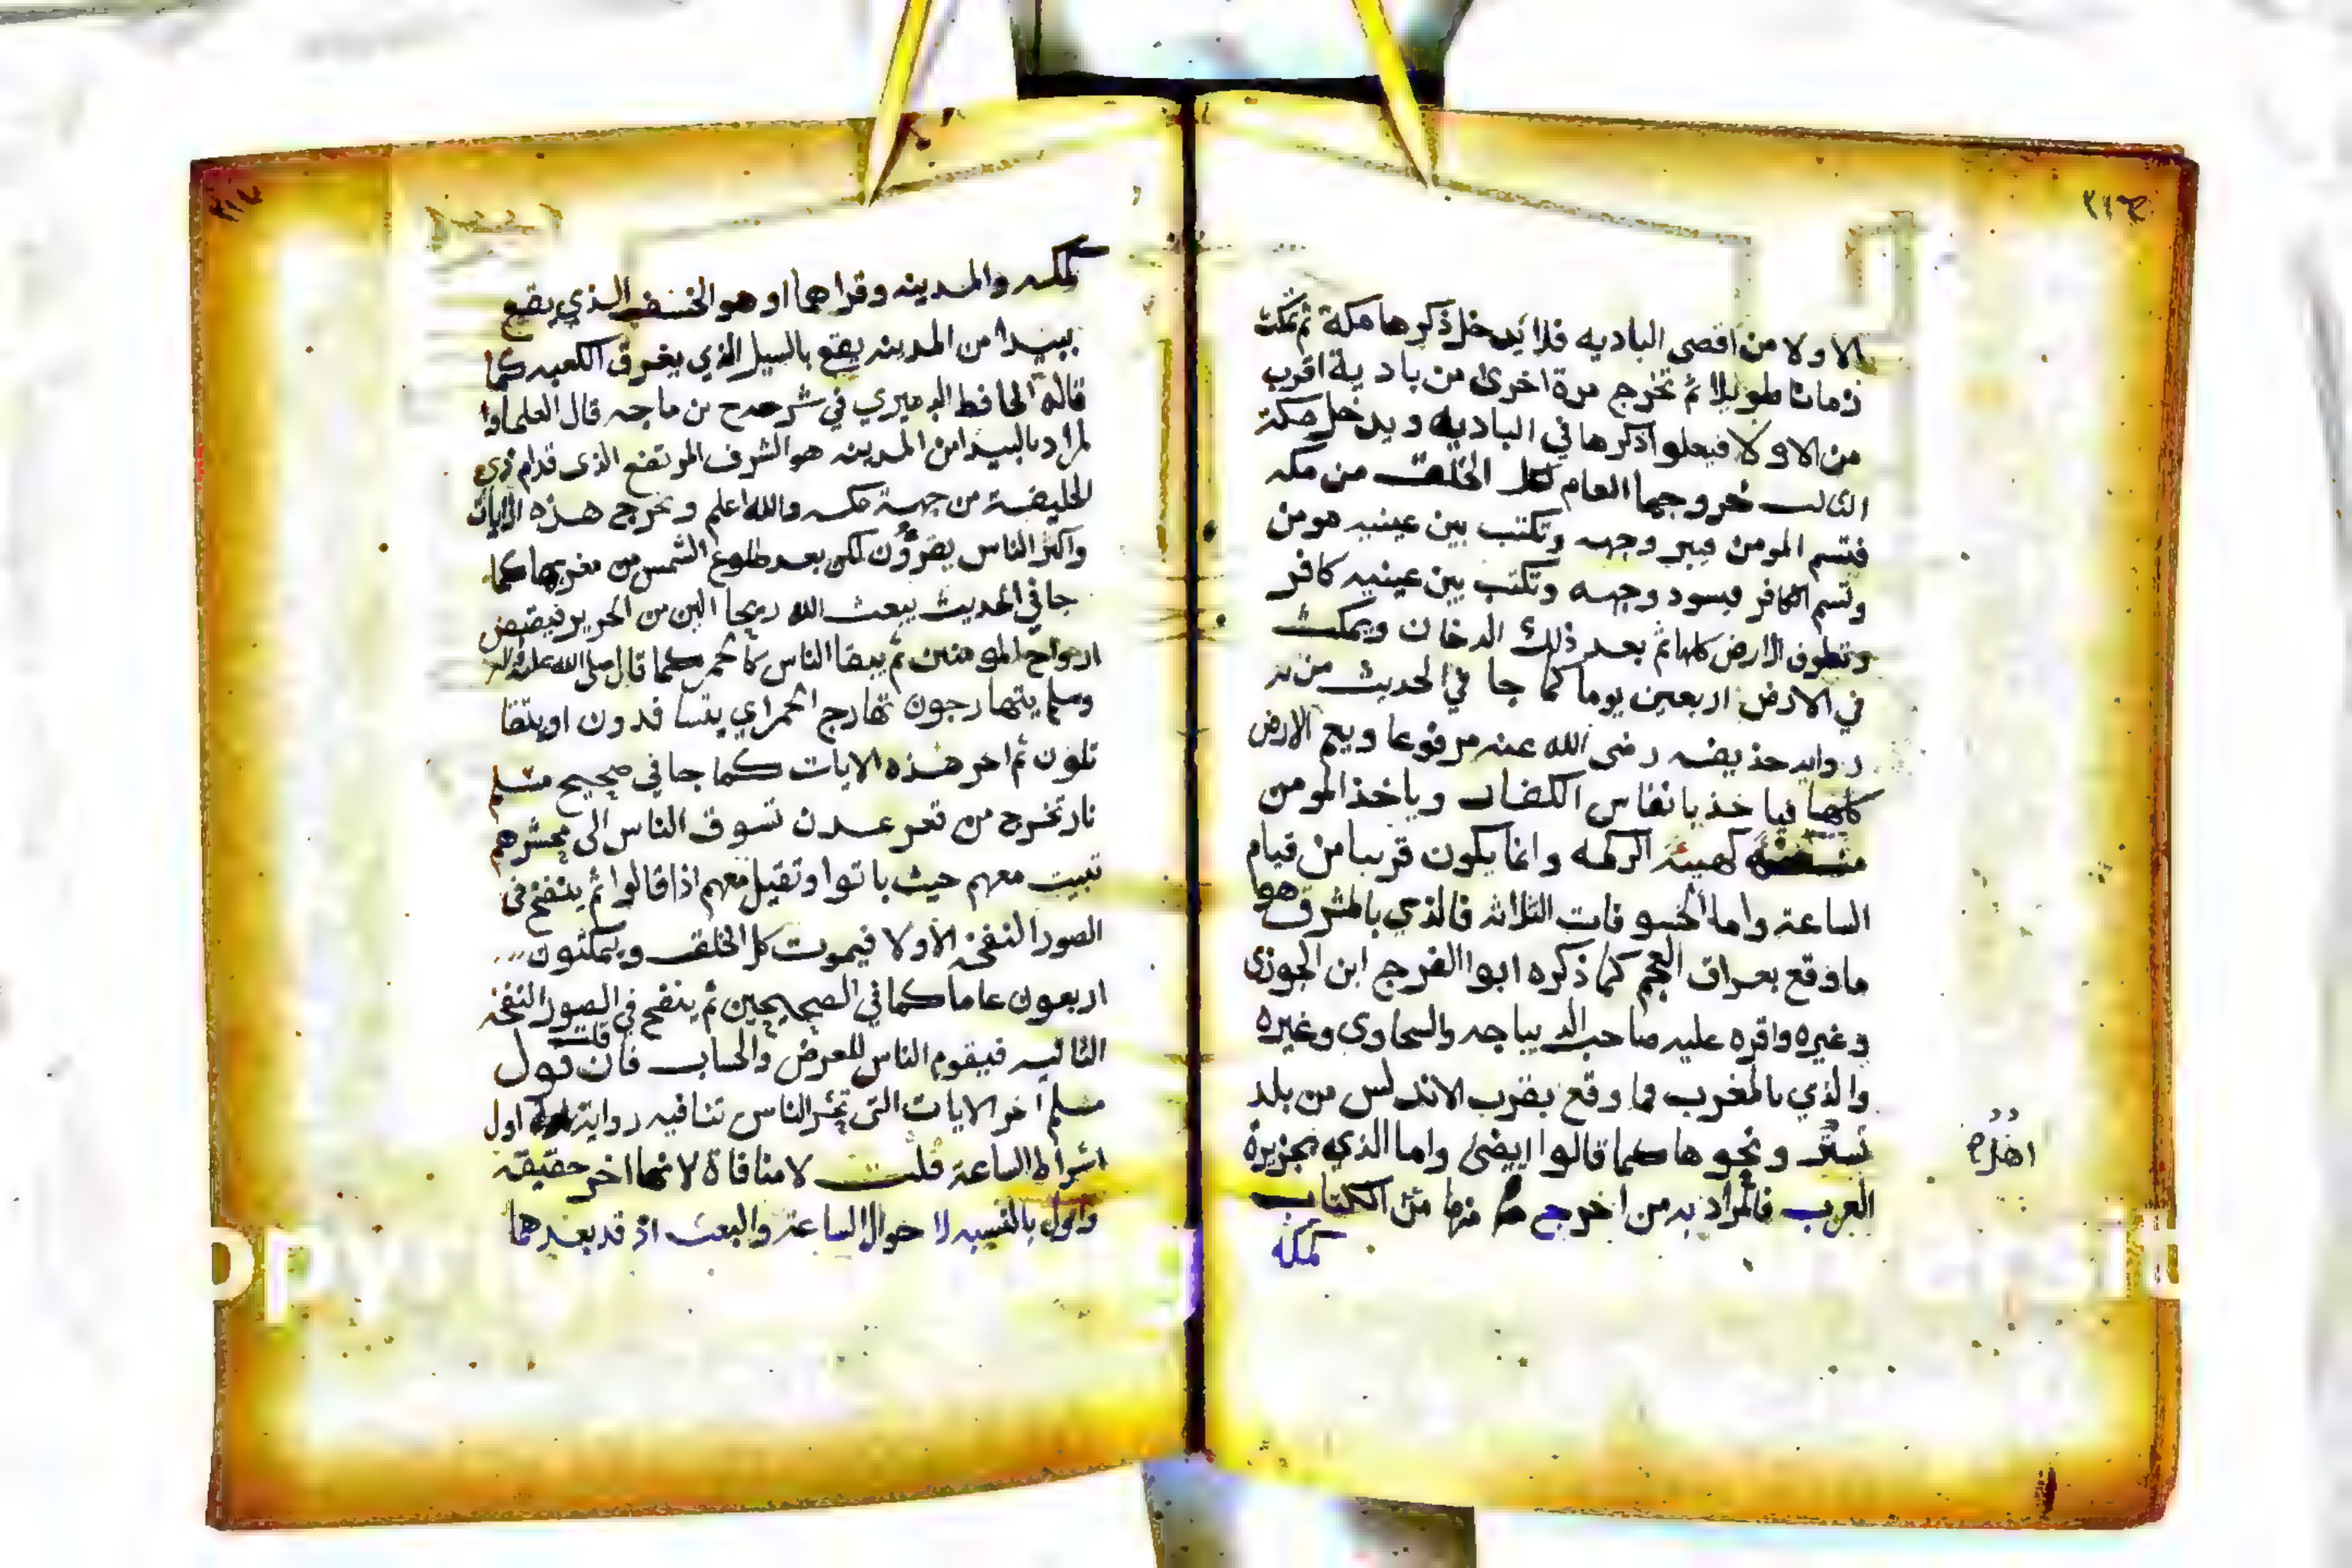 ٢١٦
الاولا من اقصى الباديه فلا يدخل ذكرها مكة ثم تمكث
زمانا طويلا ثم تخرج مرة اخرى من بادية اقرب
من الاولا فيعلوا ذكرها في الباديه ويدخل مكة
الثالث خروجها العام لكل الخلق من مكه
فتسم المومن فيبر وجهه وتكتب بين عينيه مومن
وتسم الكافر فيسود وجهه وتكتب بين عينيه كافر
وتطوف الارض كلها ثم بعد ذلك الدخان ويمكث
في الارض اربعين يوما كما جا في الحديث من
روايه حذيفه رضى الله عنه مرفوعا ويعم الارض
كلها فيا خذ بانفاس الكفار وياخذ المومن
منه كهيئة الزكمه وانما يكون قريبا من قيام
الساعة واما الخسوفات الثلاثه فالذي بالمشرق هو
ما وقع بعراق العجم كما ذكره ابوا الفرج ابن الجوزى
وغيره واقره عليه صاحب الديباجه والسخاوى وغيره
والذي بالمغرب فما وقع بقرب الاندلس من بلد
ونحوها كما قالوا ايضى واما الذي بجزيرة
العرب فالمراد به من اخرج منها من الكتاب
كمكه
٢١٧
كمكه والمدينه وقراهما او هو الخسف الذي يقع
ببيدا من المدينه يقع بالسيل الذي يغرق الكعبه كما
قاله الحافظ الدميري في شرحه ح بن ماجه قال العلما وا
لمراد بالبيدا من المدينه هو الشرف المرتفع الذى قدام ذي
الحليفة من جهة مكه والله اعلم وتخرج هذه الايات
واكثر الناس يقرؤن لكن بعد طلوع الشمس من مغربها كما
جا في الحديث يبعث الله ريحا الين من الحرير فيقبض
ارواح المومنين ثم يبقا الناس كالحمر كما قال صلى الله عليه
وسلم يتهارجون تهارج الحمر اي يتسا فدون او يتقا
تلون ثم اخر هذه الايات كما جا في صحيح مسلم
نار تخرج من قعر عدن تسوق الناس الى محشرهم
تبيت معهم حيث باتوا وتقيل معهم اذا قالوا ثم ينفخ في
الصور النفخه الاولا فيموت كل الخلق ويمكثون
اربعون عاما كما في الصحيحين ثم ينفخ في الصور النفخه
الثانيه فيقوم الناس للعرض والحساب فان قلت قول
مسلم اخر الايات التى تحشر الناس تنافيه رواية اول
اشراط الساعة قلت لا منافاة لانها اخر حقيقة
واول بالنسبه لا حوال الساعة والبعث اذ قد بعدهما